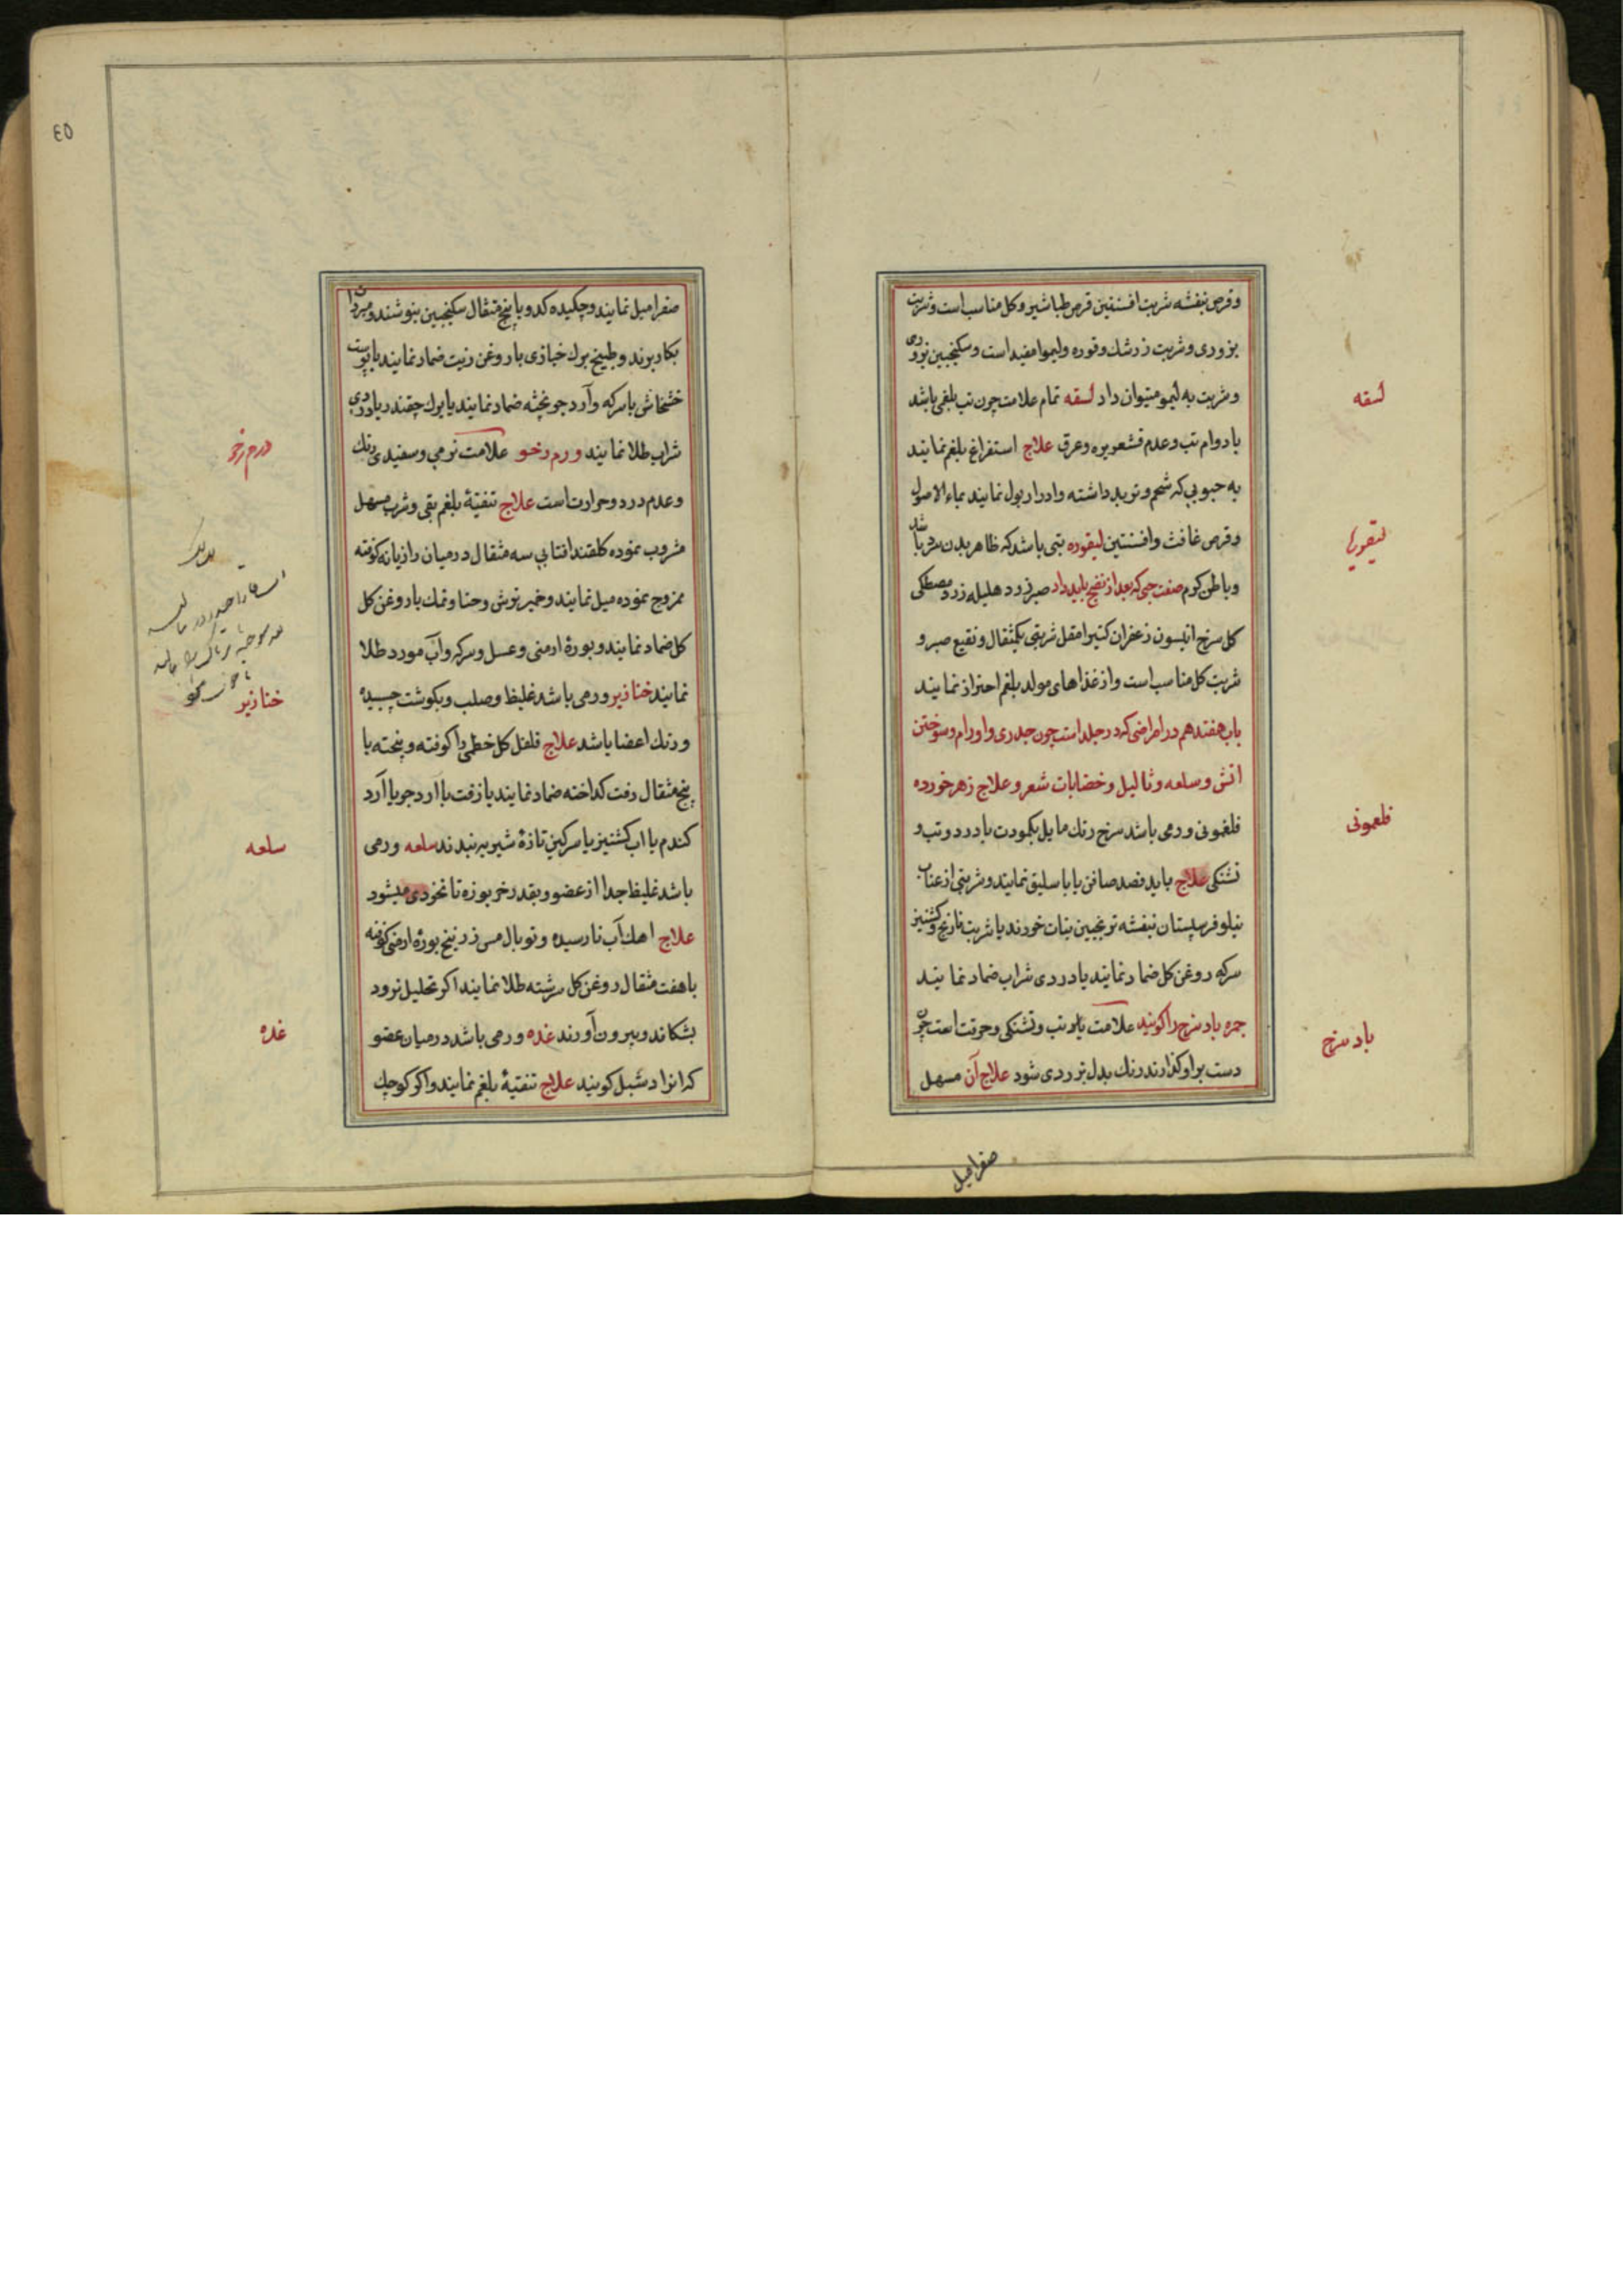 وقرص بنفشه شربت افسنتین قرص طباشیر وکل مناسب است وشربت
بزوری وشربت زرشك وقوره ولیموا مفید است وسکنجبین بزوری
وشربت به لیمو میتوان داد لسقه تمام علامت چون تب بلغمی باشد
لسقه
با دوام تب وعدم قشعریره وعرق علاج استفراغ بلغم نمایند
به حبوبی که شحم وتربد داشته وادرار بول نمایند بماء الاصول
وقرص غافث وافسنتین لیقوره تبی باشد که ظاهر بدن سرد باشد
وباطن کرم صفت حبی که بعد از نضج باید داد صبر زرد هلیله زرد مصطکی
کل سرخ انیسون زعفران کتیرا مقل شربتی یکمثقال ونقیع صبر و
شربت کل مناسب است واز غذاهای مولد بلغم احتراز نمایند
باب هفتدهم در امراضی که در جلد است چون جدری واورام وسوختن
اتش وسلعه وثالیل وخضابات شعر وعلاج زهر خورده
فلغمونی ورمی باشد سرخ رنك مایل بکمودت با درد وتب و
فلغمونی
تشنکی علاج باید فصد صافن یا باسلیق نمایند وشربتی از عناب
نیلوفر سپستان بنفشه ترنجبین نبات خورند یا شربت نارنج وکشنیز
سرکه روغن کل ضماد نمایند یا دردی شراب ضماد نمایند
جمره باد سرخ را کویند علامت یلو تب وتشنکی وحرقت است چون
باد سرخ
دست بر او کذارند رنك بدل بزردی شود علاج آن مسهل
صفرا میل
٤٥
صفرا میل نمایند وچکیده کدو با پنج مثقال سکنجبین بنوشند ومبردات
بکار برند وطبیخ برك خبازی با روغن زیت ضماد نمایند یا پوست
خشخاش با سرکه وآرد جو پخته ضماد نمایند یا برك چقندر یا دردی
شراب طلا نمایند ورم رخو علامت نرمی وسفیدی رنك
ورم رخو
وعدم درد وحرارت است علاج تنقیهٔ بلغم بقی وشرب مسهل
مشروب نموده کلقند افتابی سه مثقال در میان رازیانه کوفته
ممزوج نموده میل نمایند وخمیر ترش وحنا ونمك با روغن کل
کل ضماد نمایند وبورهٔ ارمنی وعسل وسرکه وآب مورد طلا
نمایند خنازیر ورمی باشد غلیظ وصلب وبکوشت چسبیدهٔ
خنازیر
ورنك اعضا باشد علاج فلفل کل خطمی را کوفته وپخته با
پنج مثقال زفت کداخته ضماد نمایند یا زفت با آرد جو یا آرد
کندم یا اب کشنیز یا سرکین تازهٔ شیر به بندند سلعه ورمی
سلعه
باشد غلیظ جدا از عضو وبقدر خربوزه تا نخودی میشود
علاج اهك آب نارسیده وتوبال مس زرنیخ بورهٔ ارمنی کوفته
با هفت مثقال روغن کل سرشته طلا نمایند اکر تحلیل نرود
بشکانند وبیرون آورند غده ورمی باشد در میان عضو
غده
که انرا دشبل کویند علاج تنقیهٔ بلغم نمایند واکر کوچك